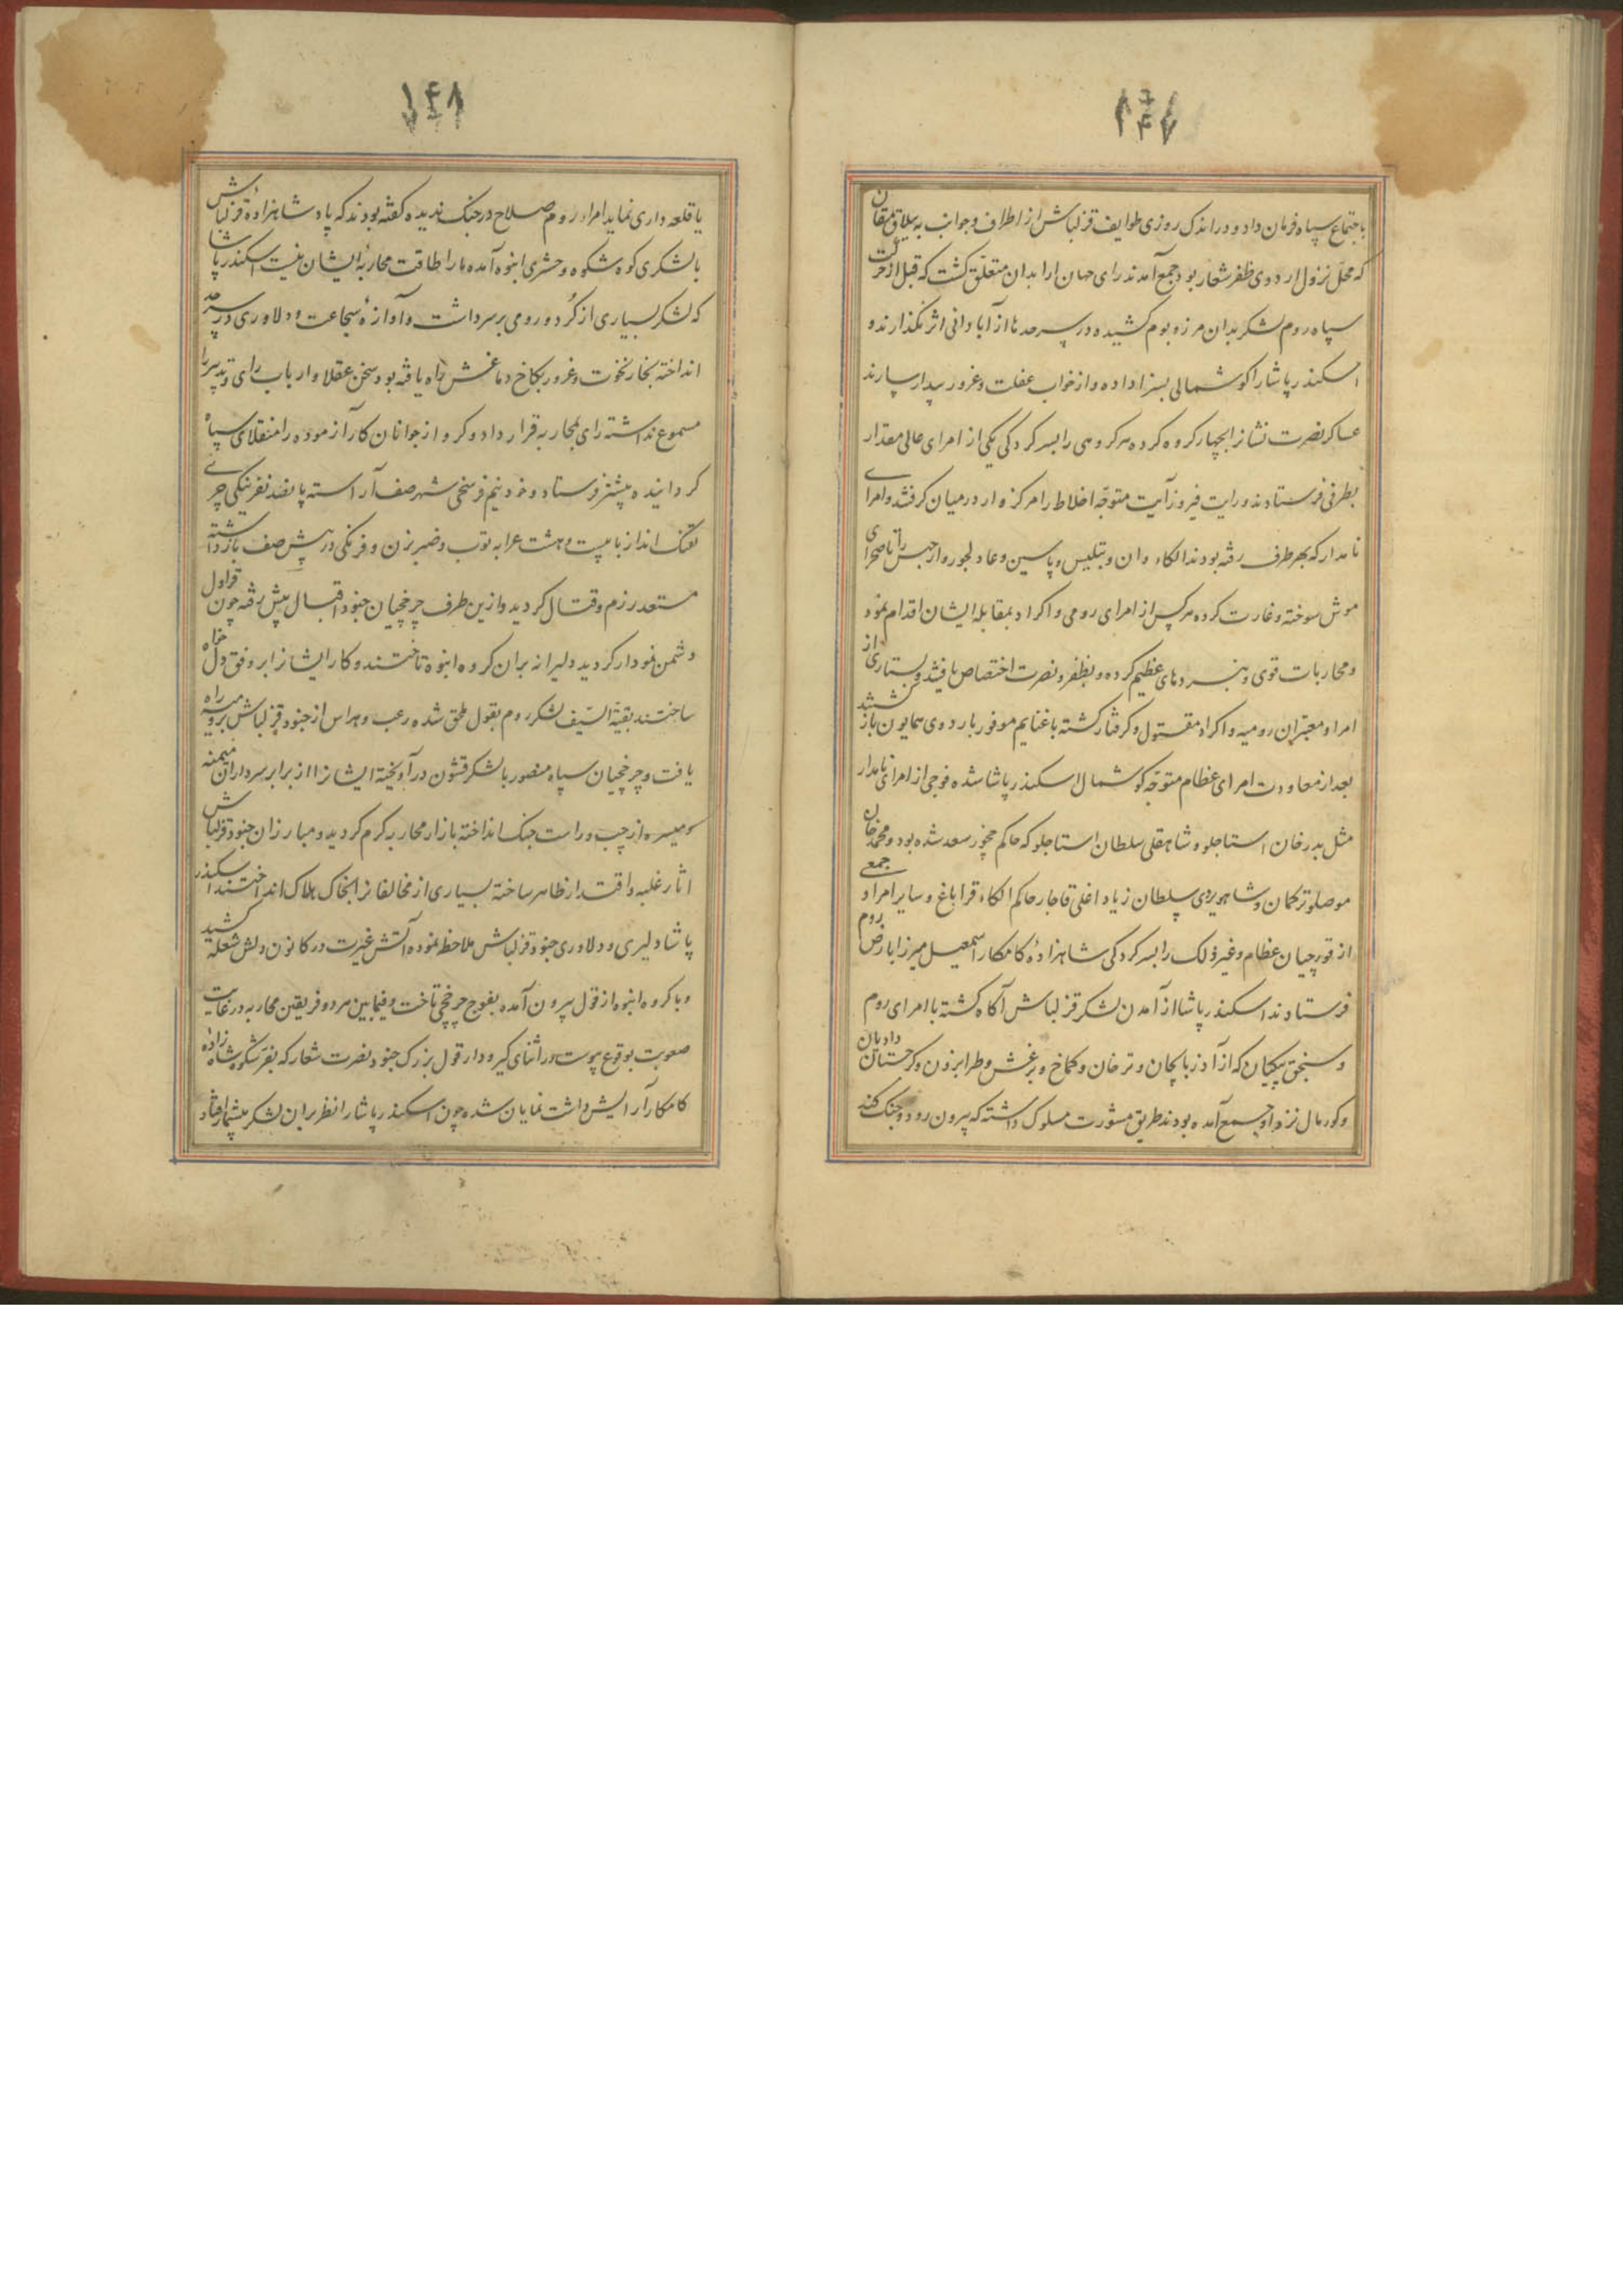 ۱۴۷
باجتماع سپاه فرمان داد و در اندک روزی طوایف قزلباش از اطراف و جوانب به ییلاق
که محل نزول اردوی ظفر شعار بود جمع آمدند رای جهان ارا بدان متعلق کشت که قبل از حرکت
سپاه روم لشکر بدان مرز و بوم کشیده در سرحد ها از آبادانی اثر نکذارند و
اسکندر پاشا را کوشمالی بسزا داده و از خواب غفلت و غرور بیدار سازند
عساکر نصرت نشانرا بچهار کروه کرده هر کروهی را بسرکردکی یکی از امرای عالی مقدار
بطرفی فرستادند و رایت فیروز آیت متوجه اخلاط را مرکز وار در میان کرفتند و امرای
نامدار که بهر طرف رفته بودند الکاء وان و بتلیس و پاسین و عادلجوز و ارجیس را تا صحرای
موش سوخته و غارت کرده هر کس از امرای رومی و اکراد بمقابله ایشان اقدام نمود
و محاربات قوی و نبردهای عظیم کرده و بظفر و نصرت اختصاص یافتند و بسیاری از
امرا و معتبران رومیه و اکراد مقتول و کرفتار کشته با غنایم موفور باردوی همایون باز کشتند
بعد از معاودت امرای عظام متوجه کوشمال اسکندر پاشا شده فوجی از امرای نامدار
مثل بدرخان استاجلو و شاهقلی سلطان استاجلو که حاکم چخور سعد شده بود و محمد خان
موصلو ترکمان و شاهویردی سلطان زیاد اغلی قاجار حاکم الکاء قراباغ و سایر امرا و جمعی
از قورچیان عظام و غیر ذلک را بسرکردکی شاهزاده کامکار اسمعیل میرزا بارض روم
فرستادند اسکندر پاشا از آمدن لشکر قزلباش آکاه کشته با امرای روم
و سنجق بیکیان که از آذربایجان و ترخان و کماخ و برغش و طرابزون و کرجستان دادیان
و کورمال نزد او جمع آمده بودند طریق مشورت مسلوک داشته که بیرون رود و جنک کند
۱۴۸
یا قلعه داری نماید امراء روم صلاح در جنک ندیده کفته بودند که پادشاهزاده قزلباش
با لشکری کوه شکوه و حشری انبوه آمده ما را طاقت محاربه ایشان نیست اسکندر پاشا
که لشکر بسیاری از کرد و رومی بر سر داشت و آوازه شجاعت و دلاوری در سرحد
انداخته بخار نخوت و غرور بکاخ دماغش راه یافته بود سخن عقلا و ارباب رای و تدبیر را
مسموع نداشته رای بمحاربه قرار داد و کروهی از جوانان کارآزموده را منقلای سپاه
کردانیده پیشتر فرستاد و خود نیم فرسخی شهر صف آراسته پانصد نفر ینکی چری
تفنک انداز با بیست و هشت عرابه توپ و ضربزن و فرنکی در پیش صف باز داشته
مستعد رزم و قتال کردید و ازین طرف چرخچیان جنود اقبال پیش رفته چون قراول
دشمن نمودار کردید دلیرانه بران کروه انبوه تاختند و کار ایشانرا بر وفق دلخواه
ساختند بقیة السیف لشکر روم بقول ملحق شده رعب و هراس از جنود قزلباش بر رومیه راه
یافت و چرخچیان سپاه منصور با لشکر قشون درآویخته ایشانرا از برابر سرداران میمنه
و میسره از چپ و راست جنک انداخته بازار محاربه کرم کردید و مبارزان جنود قزلباش
اثار غلبه و اقتدار ظاهر ساخته بسیاری از مخالفانرا بخاک هلاک انداختند اسکندر
پاشا دلیری و دلاوری جنود قزلباش ملاحظه نموده آتش غیرت در کانون دلش شعله کشید
و با کروه انبوه از قول بیرون آمده بفوج چرخچی تاخت و فیمابین هر دو فریقین محاربه در غایت
صعوبت بوقوع پیوست در اثنای کیرودار قول بزرک جنود نصرت شعار که بفر شکوه شاهزاده
کامکار آرایش داشت نمایان شده چون اسکندر پاشا را نظر بران لشکر بیشمار افتاد